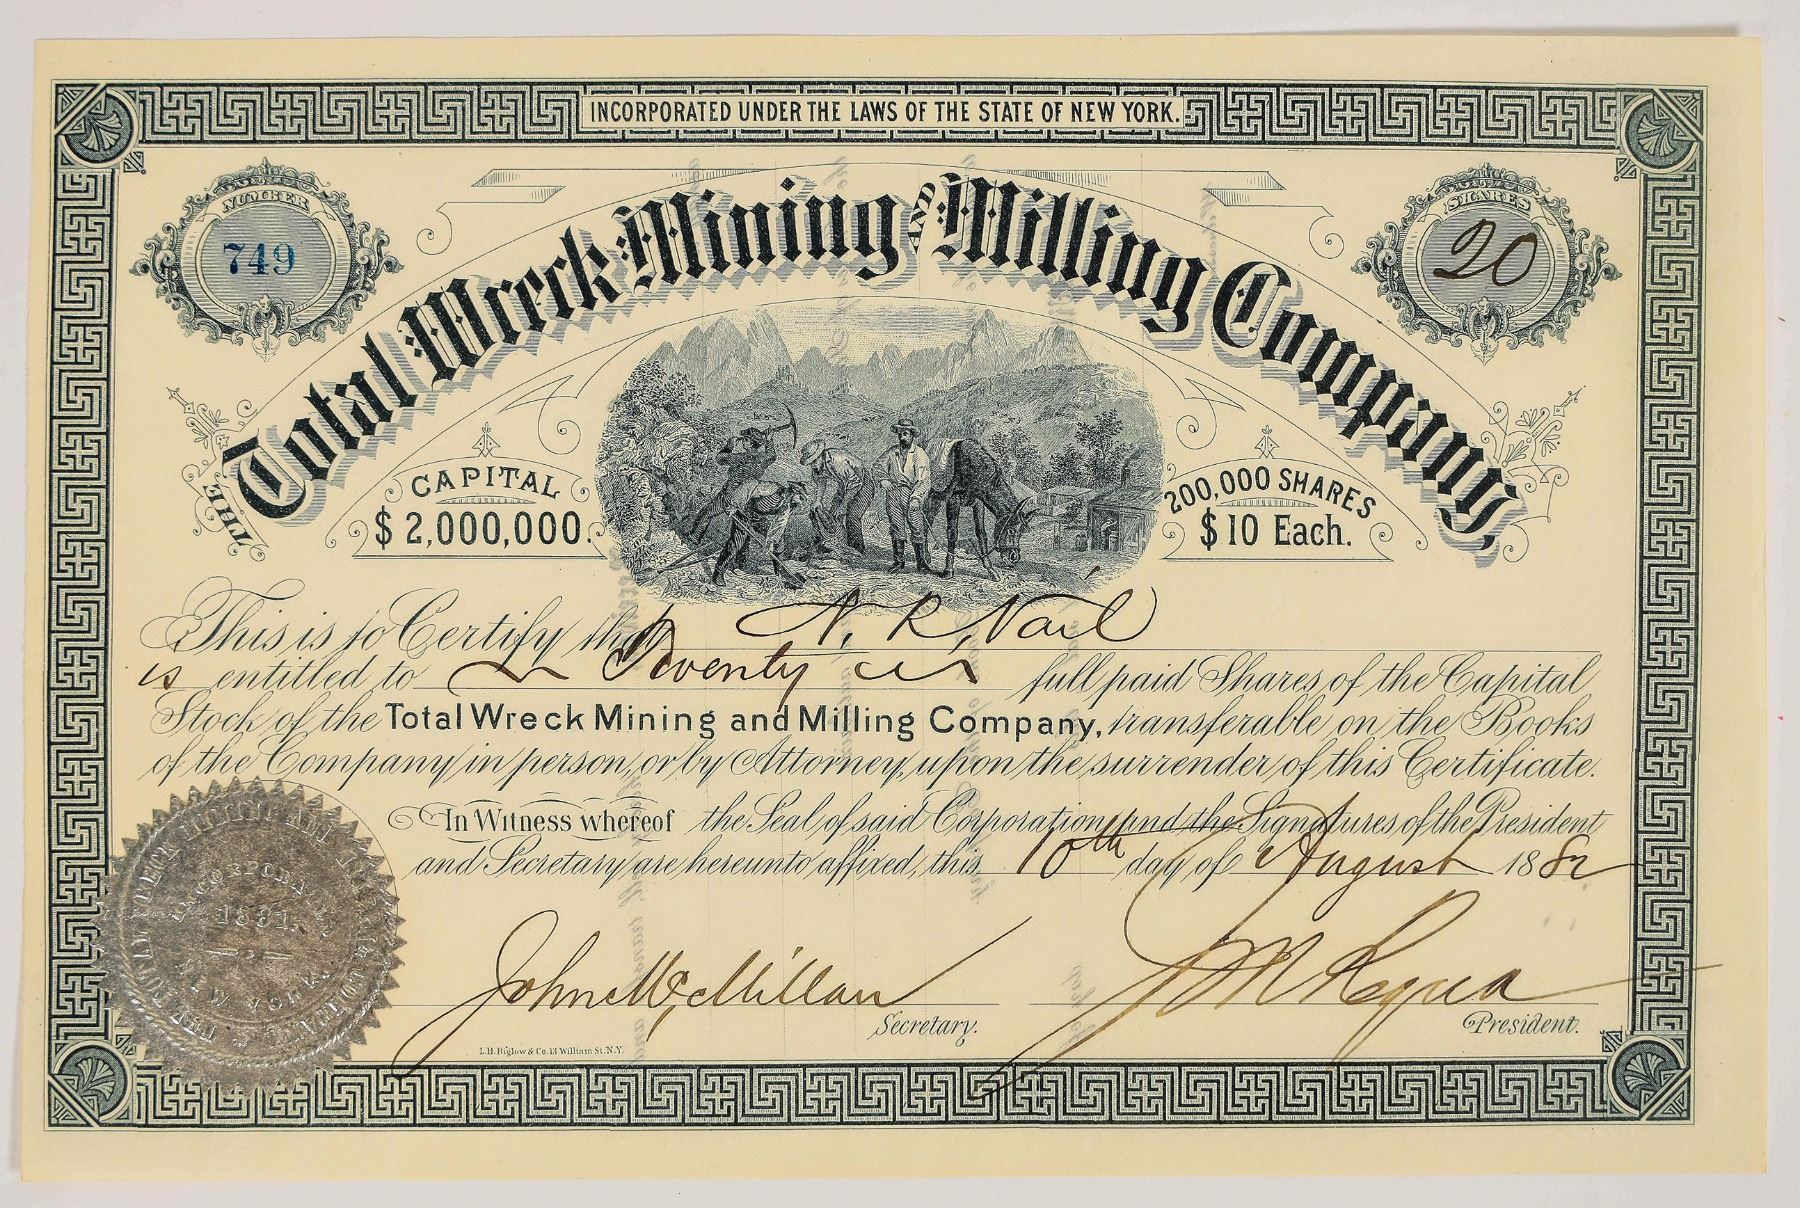 INCORPORATED UNDER THE LAWS OF THE STATE OF NEW YORK.
NUMBER
749
SHARES
20
THE Total Wreck Mining AND Milling Company,
CAPITAL
$2,000,000.
200,000 SHARES
$10 Each.
This is to Certify that N. R. Vail
is entitled to Twenty full paid Shares of the Capital
Stock of the Total Wreck Mining and Milling Company, transferable on the Books
of the Company in person, or by Attorney, upon the surrender of this Certificate.
In Witness whereof the Seal of said Corporation and the Signatures of the President
and Secretary are hereunto affixed, this 10th day of August 1882
INCORPORATED
1881.
NEW YORK.
John McMillan
Secretary.
J M Requa
President.
L.H. Biglow & Co. 13 William St. N.Y.